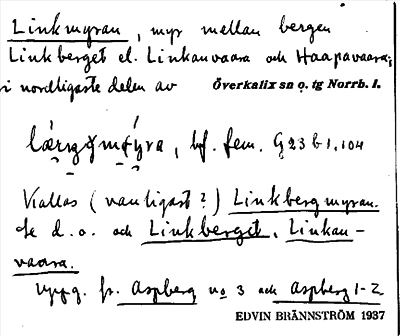 Linkmyran, myr mellan bergen
Linkberget el. Linkanvaara och Haapavaara,
i nordligaste delen av Överkalix sn o. tg Norrb. l.
bf. fem. G 23 b 1, 104
Kallas (vanligast?) Linkbergmyran.
Se d. o. och Linkberget, Linkan-
vaara.
Uppg. fr. Aspberg no 3 och Aspberg 1-2
EDVIN BRÄNNSTRÖM 1937